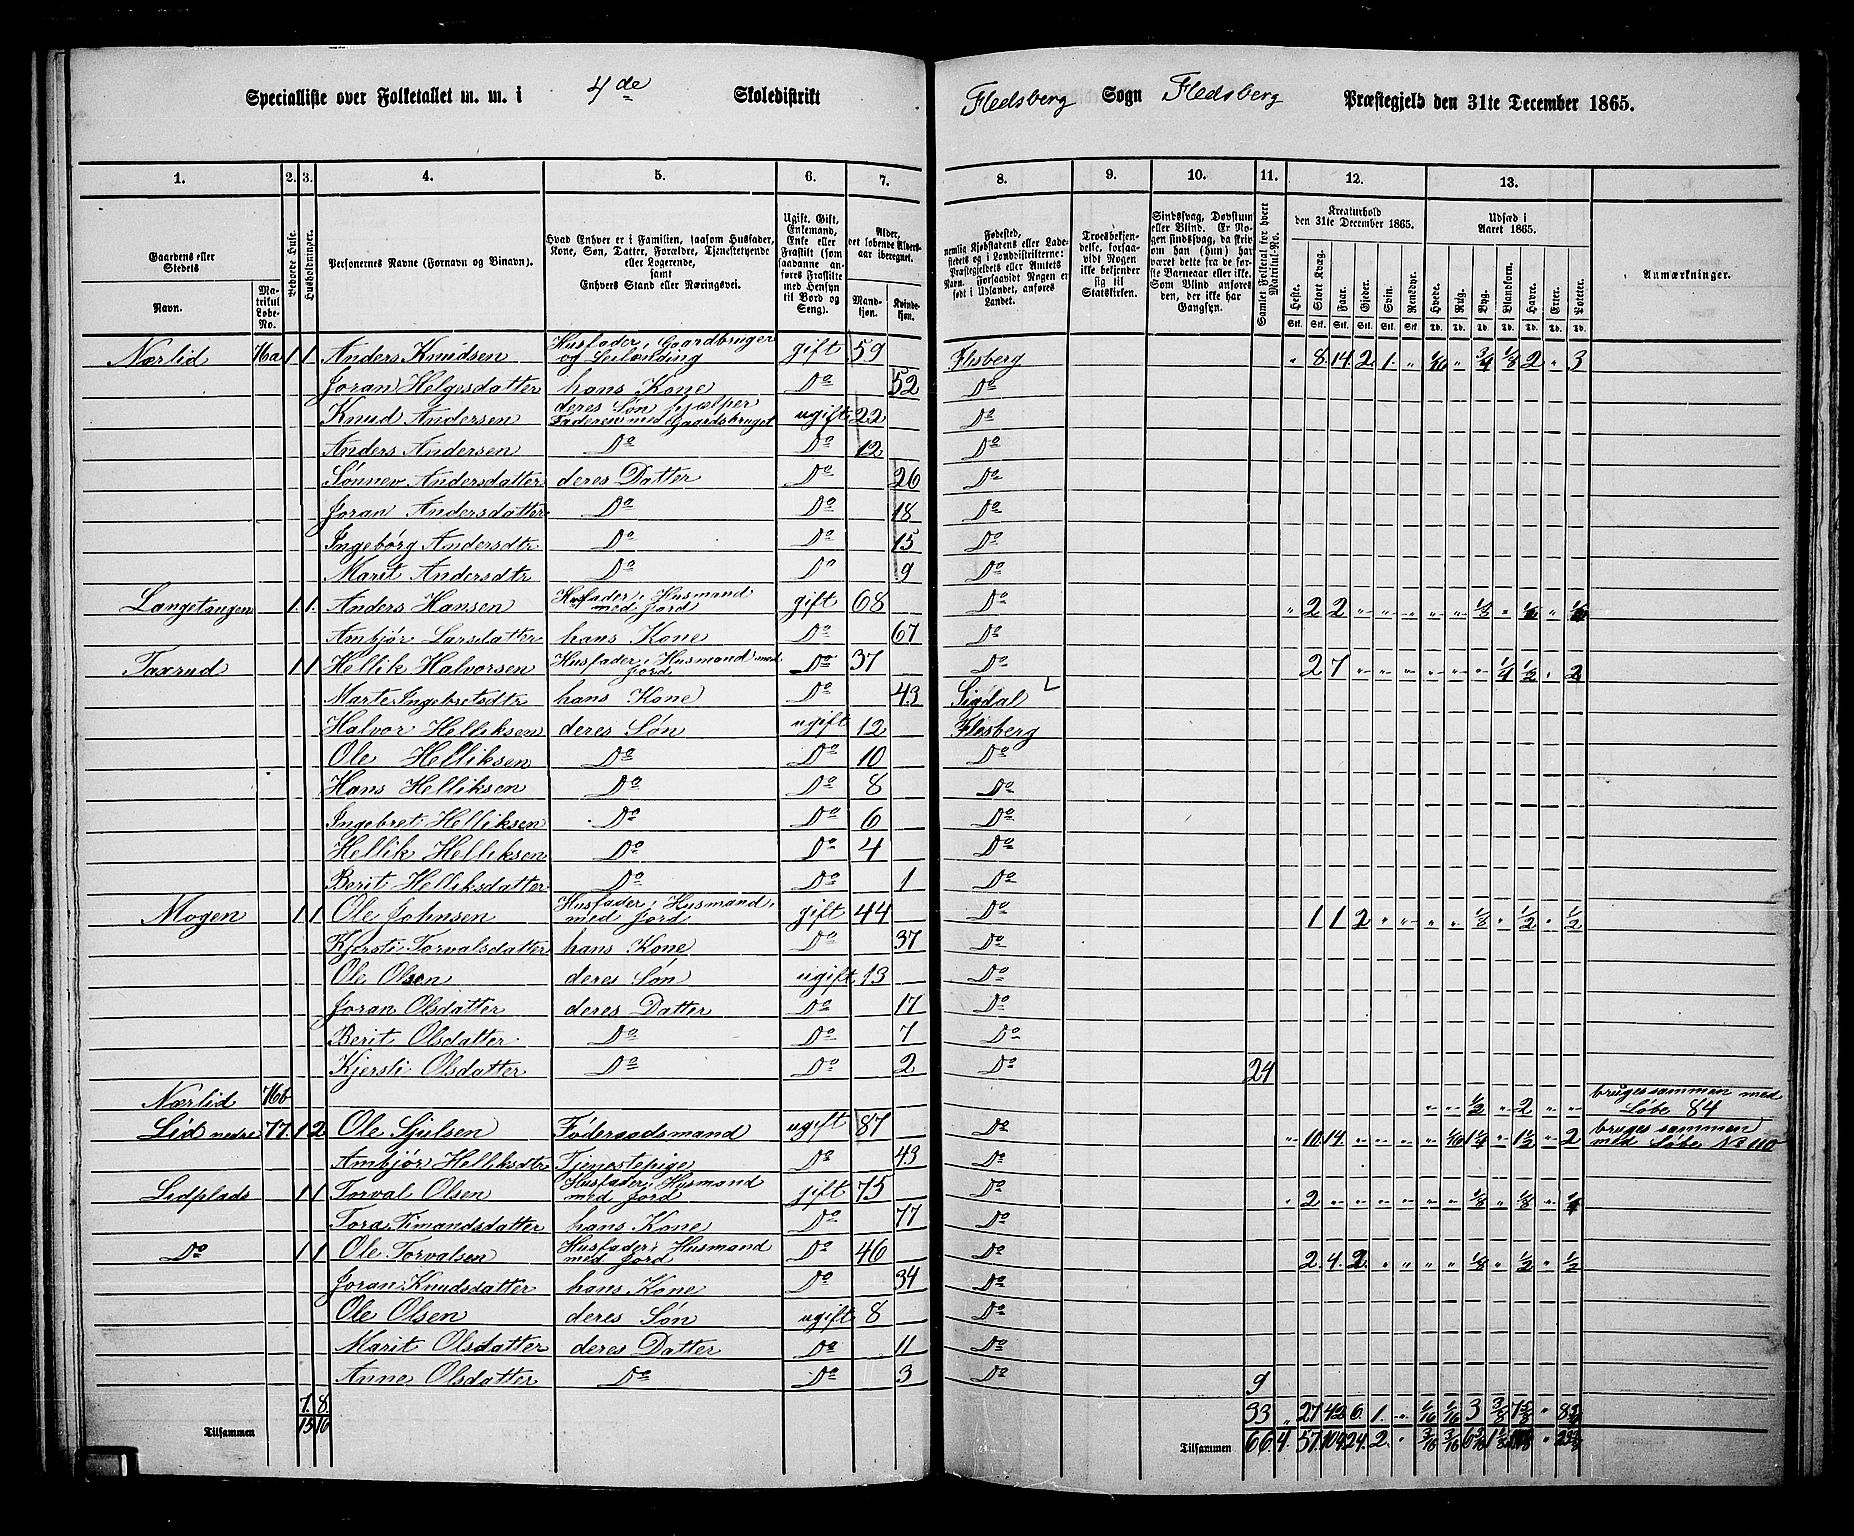 Specialliste over Folketallet m. m. i 4de Skoledistrikt Fledsberg Sogn Fledsberg Præstegjeld den 31te December 1865.
1. 2. 3. 4. 5. 6. 7. 8. 9. 10. 11. 12. 13.
Gaardens eller Stedets Navn. Matrikul Løbe-No. Beboede Huse. Husholdninger. Personernes Navne (Fornavn og Binavn). Hvad Enhver er i Familien, saasom Husfader, Kone, Søn, Datter, Forældre, Tjenestetyende eller Logerende, samt Enhvers Stand eller Næringsvei. Ugift, Gift, Enkemand, Enke eller Fraskilt (som saadanne anføres Fraskilte med Hensyn til Bord og Seng). Alder, det løbende Aldersaar iberegnet. Mandkjøn. Kvindekjøn.
Fødested, nemlig Kjøbstadens eller Ladestedets og i Landdistrikterne: Præstegjeldets eller Amtets Navn. Forsaavidt Nogen er født i Udlandet, anføres Landet. Troesbekjendelse, forsaavidt Nogen ikke bekjender sig til Statskirken. Sindssvag, Døvstum eller Blind. Er Nogen sindssvag, da skrives om han (hun) har været dette fra de første Barneaar eller ei. Som Blind anføres de, der ikke har Gangsyn. Samlet Folketal for hvert Matrikul-No. Kreaturhold den 31te December 1865. Heste. Stort Kvæg. Faar. Gjeder. Svin. Rensdyr. Udsæd i Aaret 1865. Hvede. Rug. Byg. Blandkorn. Havre. Erter. Poteter. Anmærkninger.
Nærlid 76a 1 1 Anders Knudsen Husfader, Gaardbruger og Selveiending gift 59 Flesberg " 8 14 2 1 " 1/16 " 3/4 1/8 2 " 3
Joran Helgesdatter hans Kone Do 52 Do
Knud Andersen deres Søn hjælper Faderen med Gaardsbruget ugift 22 Do
Anders Andersen Do Do 12 Do
Sønnev Andersdatter deres Datter Do 26 Do
Joran Andersdatter Do Do 18 Do
Ingebörg Andersdtr Do Do 15 Do
Marit Andersdtr Do Do 9 Do
Langetangen 1 1 Anders Hansen Husfader, Husmand med Jord gift 68 Do " 2 2 " " " " " 1/8 " 1/6 "
Ambjør Larsdatter hans Kone Do 67 Do
Taxrud 1 1 Hellik Halvorsen Husfader, Husmand med Jord Do 37 Do 2 7 " " " " " " 1/4 1/2 " 2
Marte Ingebretsdtr hans Kone Do 43 Sigdal
Halvor Helliksen deres Søn ugift 12 Flesberg
Ole Helliksen Do Do 10 Do
Hans Helliksen Do Do 8 Do
Ingebret Helliksen Do Do 6 Do
Hellik Helliksen Do Do 4 Do
Berit Helliksdatter Do Do 1 Do
Mogen 1 1 Ole Johnsen Husfader, Husmand med Jord gift 44 Do 1 1 2 " " " " 1/8 " 1/2 " 1/2
Kjersti Torvalsdatter hans Kone Do 37 Do
Ole Olsen deres Søn ugift 13 Do
Joran Olsdatter deres Datter Do 17 Do
Berit Olsdatter Do Do 7 Do
Kjersti Olsdatter Do Do 2 Do 24
Nærlid 76b " " 1/2 " 2 " " bruges sammen med Løbe 84
Lid nedre 77 1 2 Ole Sjulsen Föderaadsmand ugift 87 Do " 10 14 " " " " 1/16 1 1/4 " 1 1/2 " 2 bruges sammen med Løbe No 110
Ambjör Helliksdtr Tjenestepige Do 43 Do
Lidplads 1 1 Torval Olsen Husfader, Husmand med Jord gift 75 Do " 2 " " " " " " 1/8 " 1/8 "
Tora Timandsdatter hans Kone Do 77 Do
Do 1 1 Ole Torvalsen Husfader, Husmand med Jord Do 46 Do 2 4 2 " " " " 1/8 " 1/2 " 1/2
Joran Knudsdatter hans Kone Do 34 Do
Ole Olsen deres Søn ugift 8 Do
Marit Olsdatter deres Datter Do 11 Do
Anne Olsdatter Do Do 3 Do 9
7 8 33 " 27 42 6 1 " 1/16 1/16 3 3/8 7 5/8 "
Tilsammen 15 16 Tilsammen 66 4 57 104 24 2 " 3/16 3/16